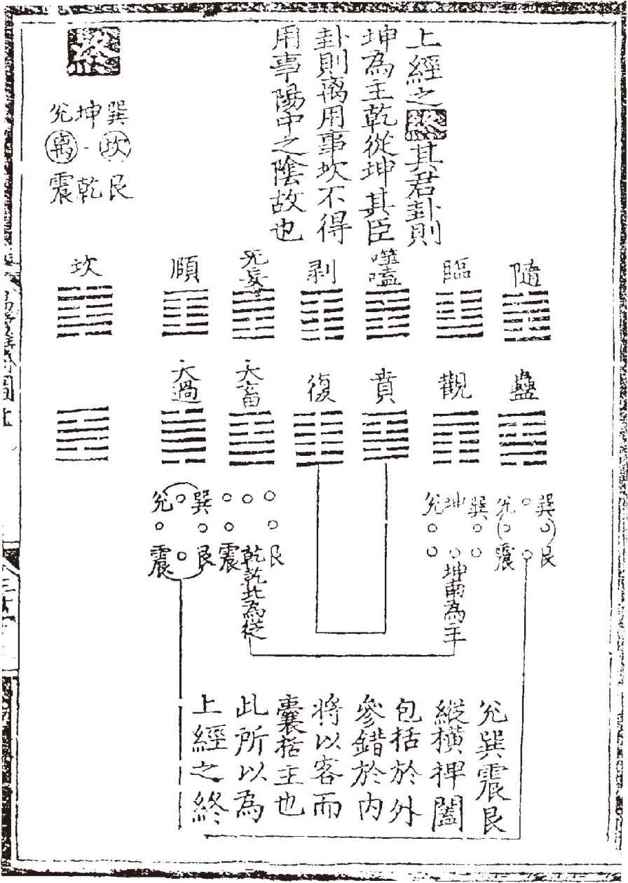 上經之終其君卦則
坤為主乾從坤其臣
卦則离用事坎不得
用事陽中之陰故也
終
巽坎艮
坤乾
兌离震
隨
臨
噬嗑
剥
无妄
頤
坎
蠱
觀
賁
復
大畜
大過
巽艮
兌震
巽
坤坤南為主
兌
艮
乾乾北為從
震
巽艮
兌震
兌巽震艮
縱橫捭闔
包括於外
參錯於内
將以客而
囊括主也
此所以為
上經之終